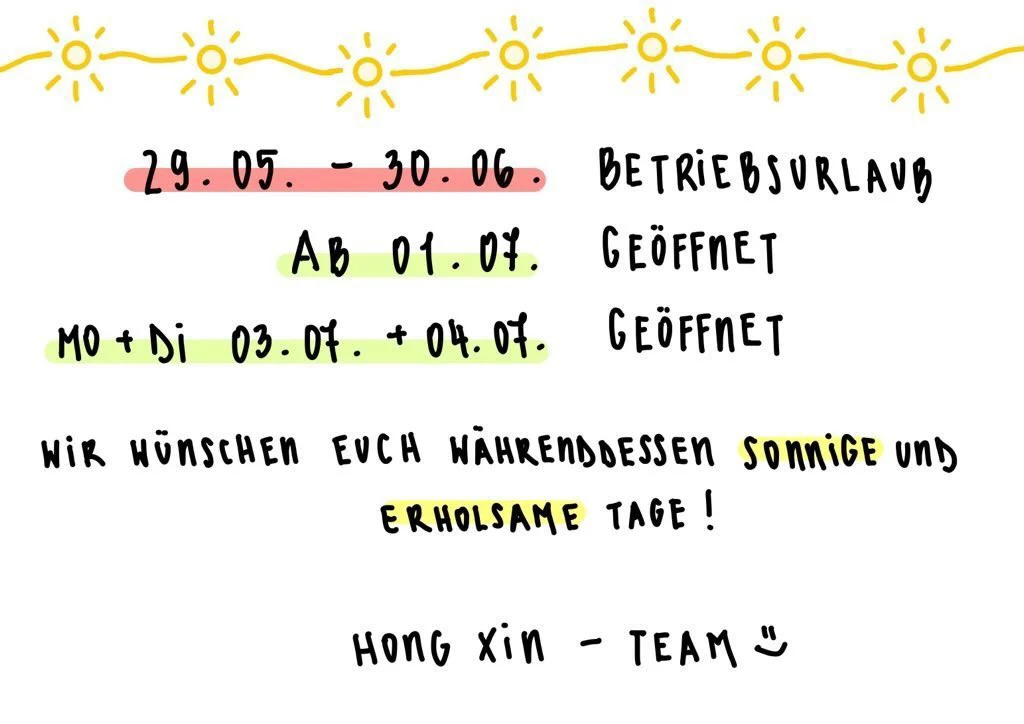 29.05. - 30.06. BETRIEBSURLAUB
AB 01.07. GEÖFFNET
MO + DI 03.07. + 04.07. GEÖFFNET
WIR WÜNSCHEN EUCH WÄHRENDDESSEN SONNIGE UND
ERHOLSAME TAGE!
HONG XIN - TEAM